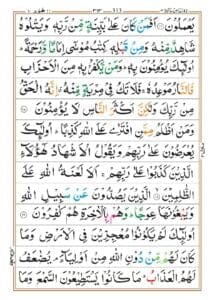 يَعْمَلُوْنَ ۝ اَفَمَنْ كَانَ عَلٰى بَيِّنَةٍ مِّنْ رَّبِّهٖ وَيَتْلُوْهُ
شَاهِدٌ مِّنْهُ وَمِنْ قَبْلِهٖ كِتٰبُ مُوْسٰٓى اِمَامًا وَّرَحْمَةً ؕ
اُولٰٓئِكَ يُؤْمِنُوْنَ بِهٖ ؕ وَمَنْ يَّكْفُرْ بِهٖ مِنَ الْاَحْزَابِ
فَالنَّارُ مَوْعِدُهٗ ۚ فَلَا تَكُ فِيْ مِرْيَةٍ مِّنْهُ ۗ اِنَّهُ الْحَقُّ
مِنْ رَّبِّكَ وَلٰكِنَّ اَكْثَرَ النَّاسِ لَا يُؤْمِنُوْنَ ۝
وَمَنْ اَظْلَمُ مِمَّنِ افْتَرٰى عَلَى اللّٰهِ كَذِبًا ؕ اُولٰٓئِكَ
يُعْرَضُوْنَ عَلٰى رَبِّهِمْ وَيَقُوْلُ الْاَشْهَادُ هٰٓؤُلَآءِ
الَّذِيْنَ كَذَبُوْا عَلٰى رَبِّهِمْ ۚ اَلَا لَعْنَةُ اللّٰهِ عَلَى
الظّٰلِمِيْنَ ۝ الَّذِيْنَ يَصُدُّوْنَ عَنْ سَبِيْلِ اللّٰهِ
وَيَبْغُوْنَهَا عِوَجًا ؕ وَهُمْ بِالْاٰخِرَةِ هُمْ كٰفِرُوْنَ ۝
اُولٰٓئِكَ لَمْ يَكُوْنُوْا مُعْجِزِيْنَ فِي الْاَرْضِ وَمَا
كَانَ لَهُمْ مِّنْ دُوْنِ اللّٰهِ مِنْ اَوْلِيَآءَ ۘ يُضٰعَفُ
لَهُمُ الْعَذَابُ ؕ مَا كَانُوْا يَسْتَطِيْعُوْنَ السَّمْعَ وَمَا